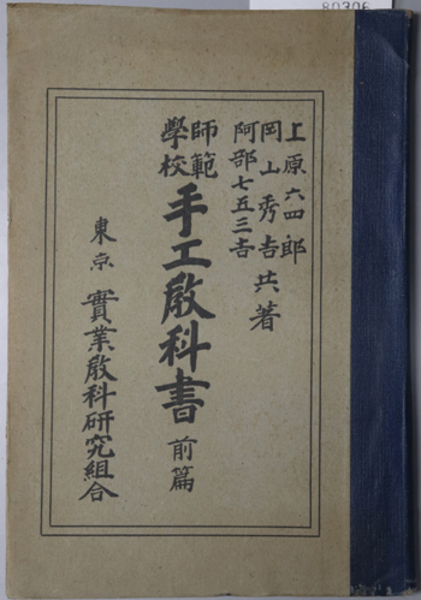 上原六四郎
岡山秀吉
阿部七五三吉
共著
師範
學校
手工教科書 前篇
東京 實業教科研究組合
80306